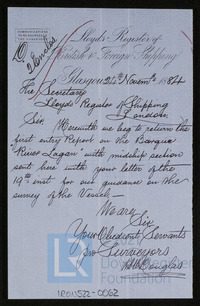 COMMUNICATIONS
TO BE ADDRESSED TO
THE SURVEYORS
Lloyd's Register of
British & Foreign Shipping
Glasgow 22nd Novemr 1884
The Secretary
Lloyds Register of Shipping
London
Sir, Herewith we beg to return the
first entry Report on the Barque
"River Lagan" with midship section
sent here with your letter of the
19th inst for our guidance in the
survey of the Vessel
We are
Sir
Your Obedient Servants
pro Surveyors
Douglas
LRF
Lloyd's Register
Foundation
LRDU522-0062